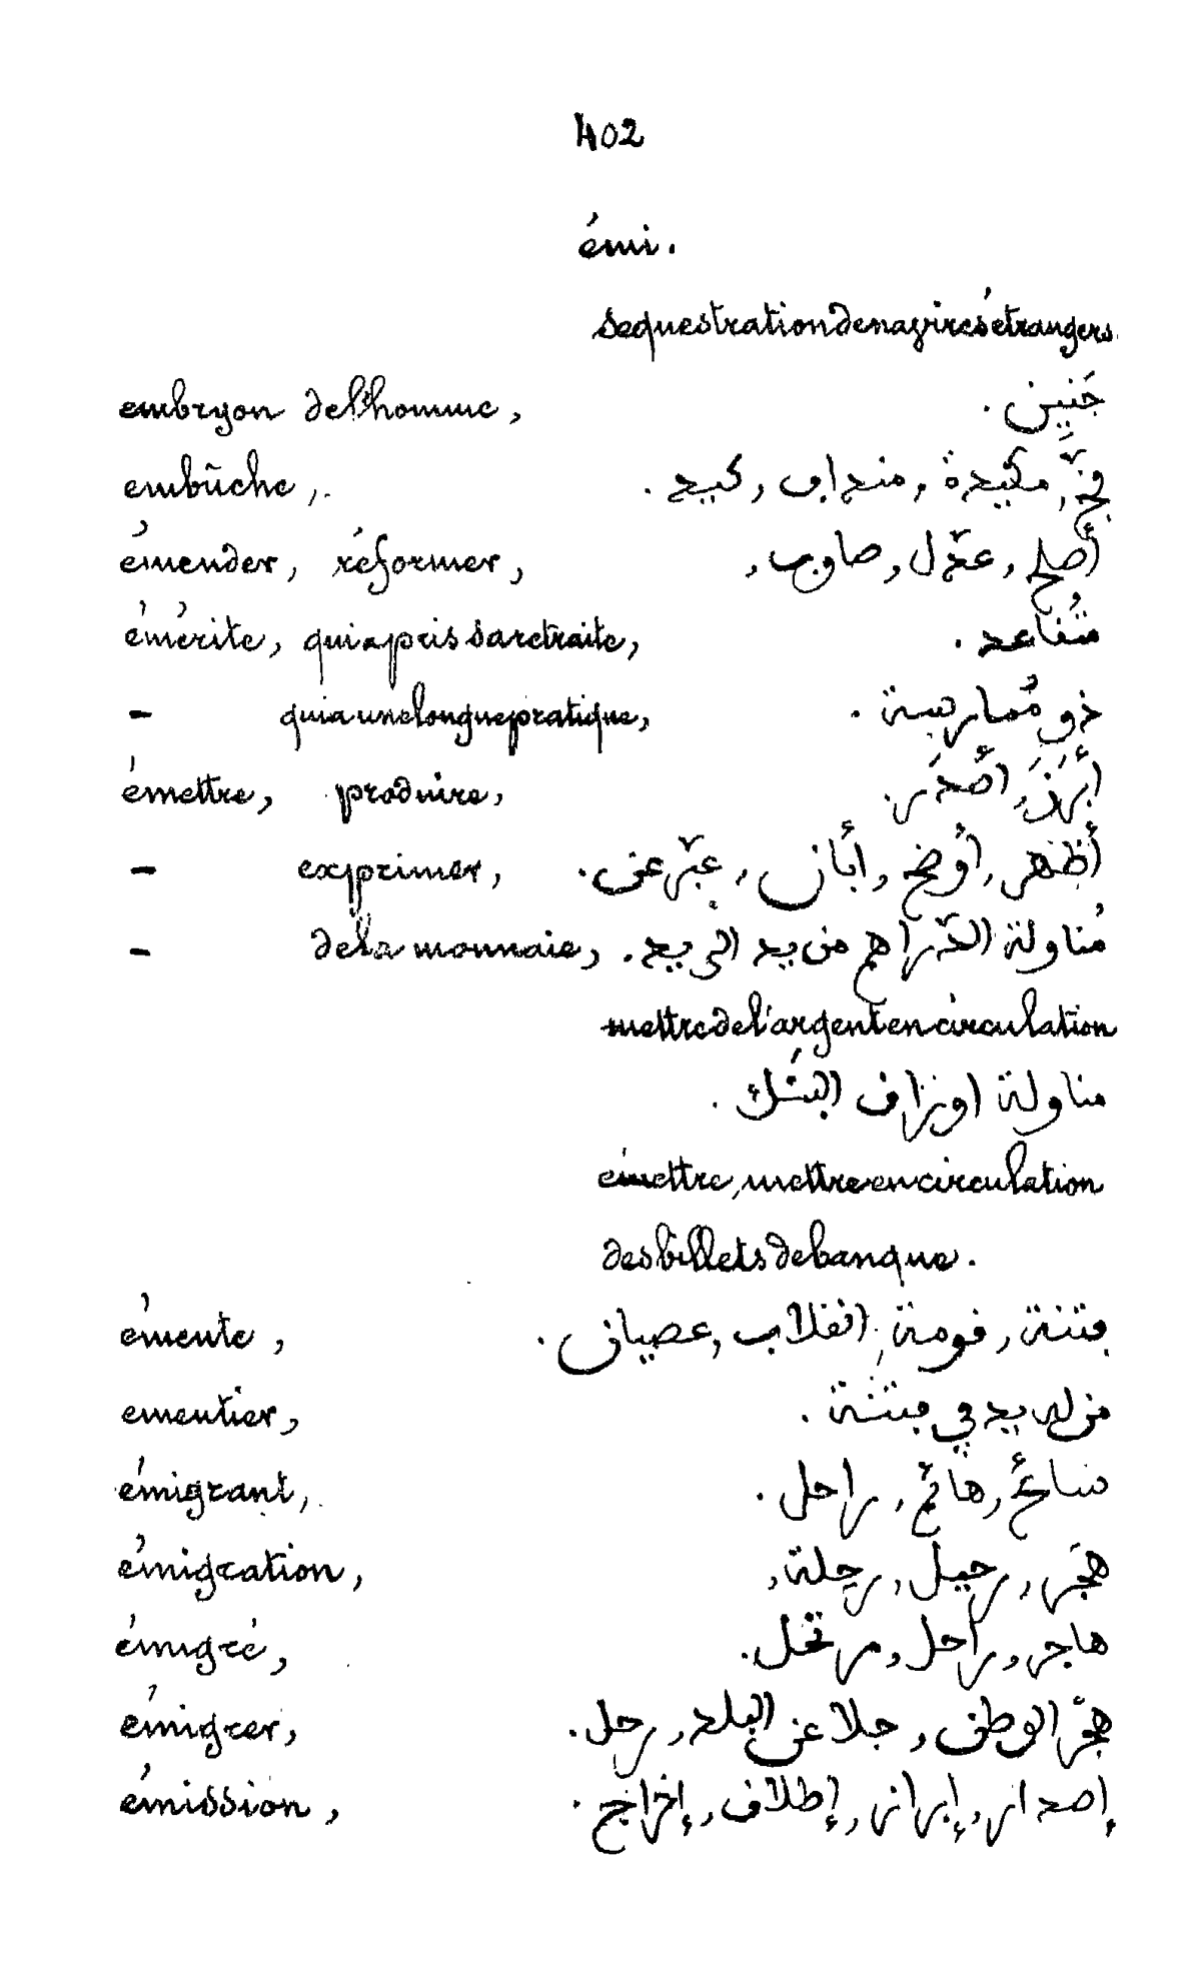 402
émi.
sequestration de navires étrangers.
embryon de l'homme, جَنِين .
embûche, فخّ, مكيدة, منداف, كيد .
émender, réformer, أصلح, عدّل, صاوب,
émérite, qui a pris sa retraite, مُتُقاعد .
- qui a une longue pratique, ذو مُمارسة .
émettre, produire, أبْرَزَ, أصْدَر.
- exprimer, أظهر, أوضح, أبان, عبّر عن .
- de la monnaie, مُناولة الدّراهم من يد الى يد .
mettre de l'argent en circulation
مناولة اوراق البَنْك .
émettre, mettre en circulation
des billets de banque.
émeute, فتنة, قومة, انقلاب, عصيان .
émeutier, من له يد في فتنة .
émigrant, سائح, هائم, راحل .
émigration, هَجْر, رحيل, رحلة,
émigré, هاجر, راحل, مرتحل.
émigrer, هجَر الوطن, جلا عن البلد, رحل.
émission, إصدار, إبراز, إطلاق, إخراج .